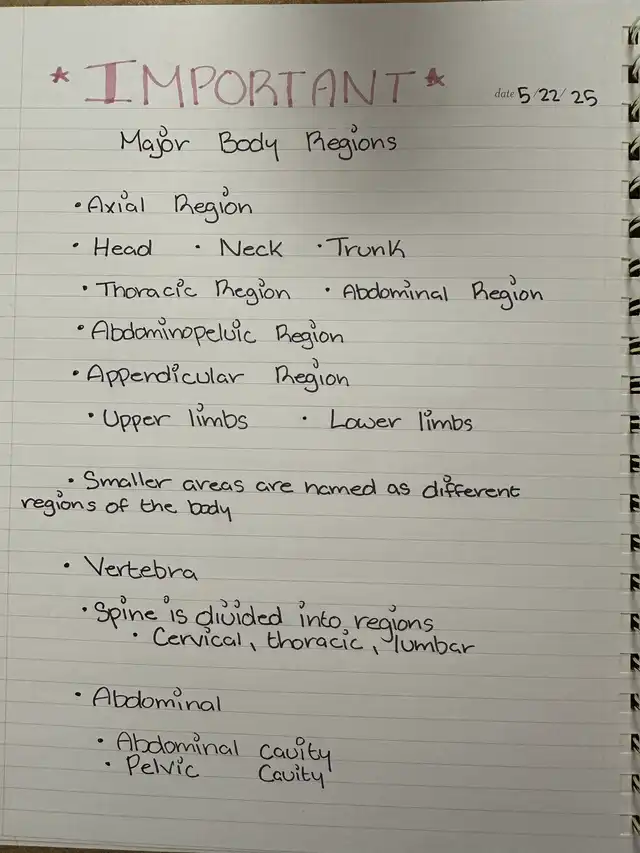 * IMPORTANT *
date 5/22/25
Major Body Regions
• Axial Region
• Head • Neck • Trunk
• Thoracic Region • Abdominal Region
• Abdominopelvic Region
• Appendicular Region
• Upper limbs • Lower limbs
• Smaller areas are named as different
regions of the body
• Vertebra
• Spine is divided into regions
• Cervical, thoracic, lumbar
• Abdominal
• Abdominal cavity
• Pelvic Cavity